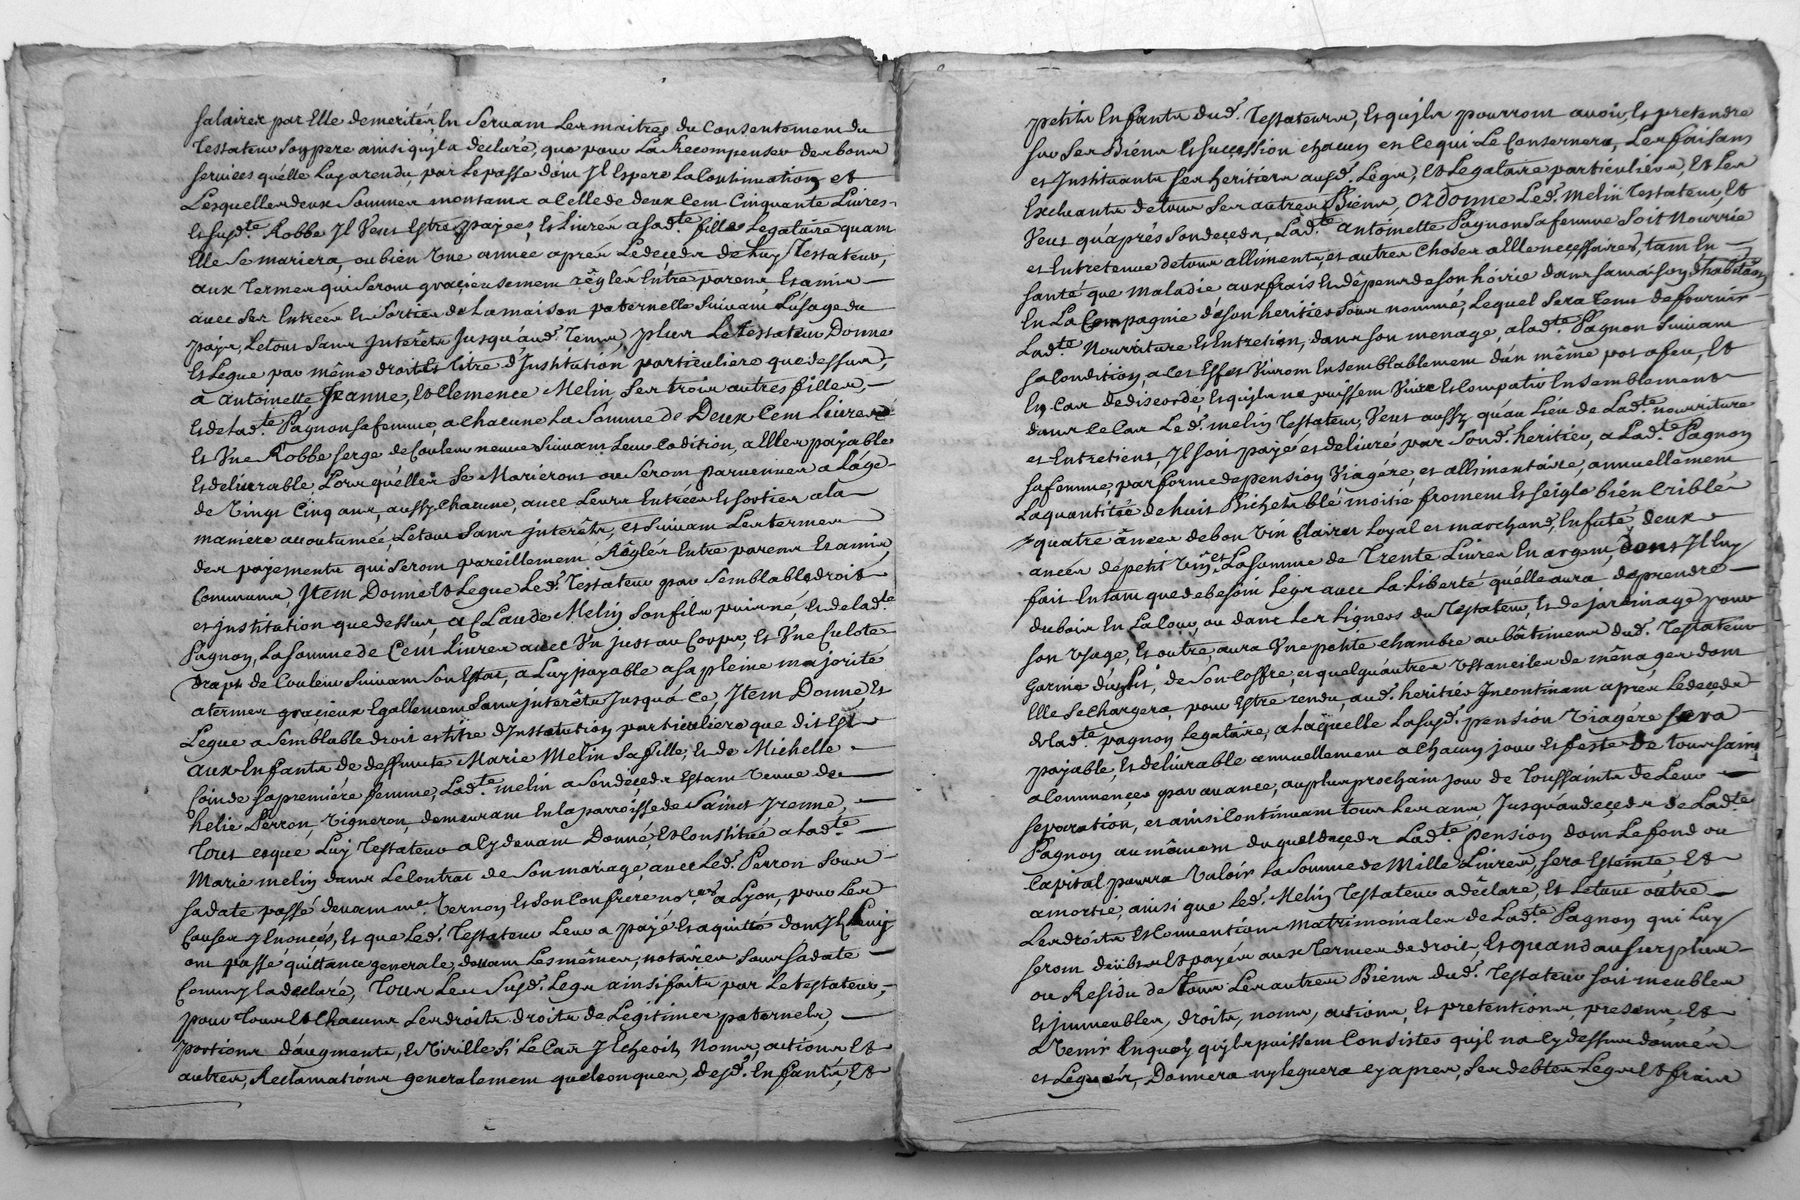 salaires par Elle demerités En Servant Les maitres du Consentement du
Testateur Son pere ainsi quil a declaré, que pour La Recompenser des bons
services quélle Luy a rendu, par Le passé dont Jl Espere La Continuation et
Lesquelles deux Sommes montants a Celle de deux Cent Cinquante Livres
Et susd.te Robbe Jl Veut Estre payées, et Livrés a sad.te fille Legataire quant
Elle Se mariera, ou bien Une année aprés Le deceds de Luy Testateur,
aux Termes qui Seront gracieusement réglés Entre parens, Et amis
avec Ses Entrées Et Sorties de La maison paternelle Suivant Lusage du
pays, Le tout Sans Jnterêts Jusqu'aud. Tems, plus Le testateur Donne
Et Legue par même droit et titre d'Jnstitution particuliere que dessus,
à antoinette Jeanne, Et Clemence Melin Ses trois autres filles,
Et de lad.te Pagnon sa femme, a chacune La Somme de Deux Cent Livres
Et Une Robbe Serge de Couleur neuve Suivant Leur Codition, a Elles payable
Et delivrable Lors quélles Se Marieront ou Seront parvenues a L'age
de Vingt Cinq ans, aussy chacune, avec Leurs Entrées Et Sorties a la
maniere accoutumée, Le tout Sans jnterêts, et Suivant Les termes
des payements qui Seront pareillement Réglés Entre parens Et amis
Communs, Jtem Donne Et Legue Led. Testateur par Semblable droit
et jnstitution que dessus, a CLaude Melin Son fils puisné, Et de lad.te
Pagnon, La Somme de Cent Livres avec Un Just au Corps, Et Une Culote
Drapt de Couleur Suivant Son Estat, a Luy payable a sa pleine majorité
a termes gracieux Egallement Sans jnterêts Jusqu'à ce, Jtem Donne, Et
Legue a Semblable droit et titre d'Jnstatution particuliere que dit Est
aux Enfants de deffuncte Marie Melin Sa fille, Et de Michelle
Coinde Sa premiére femme, Lad.te melin a Son deçeds Estant Veuve de
helie Perron, Vigneron, demeurant En la parroisse de Sainct Jrenne,
Tout ce que Luy Testateur a Cy devant Donné, Et Constitué a Lad.te
Marie melin dans Le Contrat de Son mariage avec Led. Perron Sous
Sa date passé devant me. Vernon Et Son Confrére no.res a Lyon, pour Les
Causes Enoncés, Et que Led. Testateur Leur a payé Et aquitté dont Jls Luy
ont passé quittance generale devant Les mêmes notaires Sous Sa date
Comm'jl a declaré, Tous Les Susd. Legs ainsi faits par Le testateur,
pour Tous Et Chacuns Les droits droits de Légitimes paternels,
portions d'augments, Et Virilles Si Le Cas Jl Echeoit Noms, actions Et
autres, Reclamations generalement quelconques, desd. Enfants, Et
petits Enfants dud. Testateurs, Et qu'jls pourront avoir, Et pretendre
sur Ses Biéns Et Suçession chacun en Ce qui Le Consernera, Les faisans
et Jnstituants Ses heritiers ausd. Légs, Et Legataire particuliérs, Et Les
Excluants de tous Ses autres Biéns, Ordonne Led. Melin Testateur, Et
Veut qu'aprés Son deçeds, Lad.te antoinette Pagnon Sa femme Soit Nourrie
et Entretenue de tous alliments, et autres Choses a Elle neçessaires, tant En
Santé que Maladie aux frais Et dépens de Son hoirie dans Sa maison d'habita[ti]on
En La Compagnie de Son heritier Sous nommé, Lequel Sera Tenu de fournir
Lad.te Nourriture Et Entretien, dans Son menage, a lad.te Pagnon Suivant
Sa Condition, a Cet Effet Vivront Ensemblablement d'un même pot a feu, Et
En Cas de discorde, Et qu'jls ne puissent Vivre Et Compatir Ensemblement
dans Ce Cas Led. melin Testateur, Veut aussy, qu'au Liéu de Lad.te nourriture
et Entretient, Jl Soit payé et delivré par Sond. heritier, a Lad.te Pagnon
Sa femme, par forme de pension Viagére, et allimentaire, annuellement
La quantitée de huit Bichets blé moitié froment Et Seigle bién Criblé
quatre ânées de bon Vin Clairet Loyal et marchand, En futé, deux
anées de petit Vin, Et La Somme de Trente Livres En argent, dont Jl Luy
fait En tant que de besoin Legs avec La Liberté quélle aura de prendre
du bois En La Cour, ou dans Les Lignes du Testateur, Et de jardinage pour
Son Usage, Et outre aura Une petite chambre au bâtiment dud. Testateur
Garnie d'un Lit, de Son Coffre, et quelqu'autres Ustanciles de ménages dont
Elle Se Chargera, pour Estre rendu, aud. heritier Jncontinant aprés Le deçeds
de lad.te pagnon Legataire, a Laquelle La Susd. pension Viagére Sera
payable, Et delivrable annuellement a Chacun jour Et feste de toussaints
a Commencer par avance, au plus prochain jour de Toussaints de Leur
Separation, et ainsi Continuant tous Les ans, Jusqu'au deçeds de Lad.te
Pagnon au moment duquel deceds Lad.te pension dont Le fond ou
Capital pourra Valoir La Somme de Mille Livres, Sera Esteinte, Et
amortie, ainsi que Led. Melin Testateur a déclaré, Et Le tout outre
Les droits Et Conventions Matrimoniales de Lad.te Pagnon qui Luy
Seront deübs Et payés aux Termes de droit, Et quand au Surplus
ou Residu de Tous Les autres Biéns dud. Testateur Soit meubles
Et jmmeubles, droits, noms, actions, Et pretentions, presents, Et
a Venir En quoy qu'jls puissent Consister qu'jl na Cy dessus donnés
et Legués, Donnera ny leguera Cy aprés, Ses debtes Legs Et frais